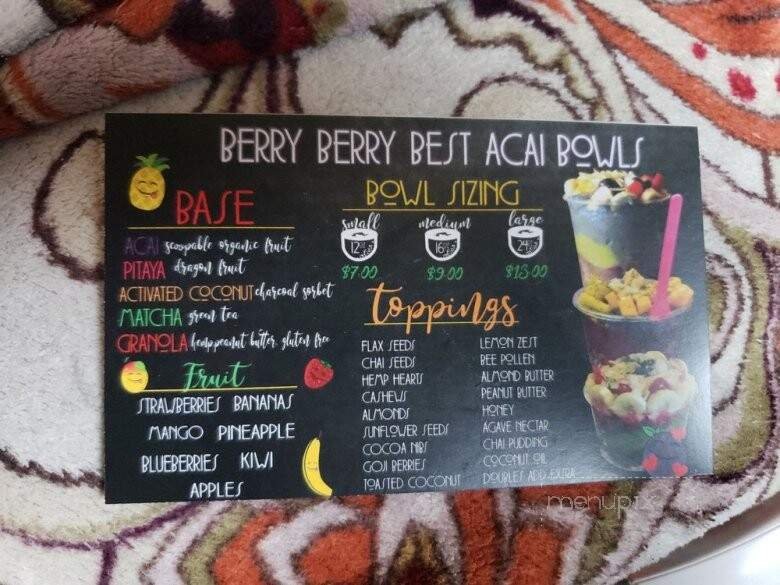 BERRY BERRY BEST ACAI BOWLS
BASE
ACAI scoopable organic fruit
PITAYA dragon fruit
ACTIVATED COCONUT charcoal sorbet
MATCHA green tea
GRANOLA hemp peanut butter, gluten free
Fruit
STRAWBERRIES BANANAS
MANGO PINEAPPLE
BLUEBERRIES KIWI
APPLES
BOWL SIZING
small medium large
12oz 16oz 24oz
$7.00 $9.00 $13.00
toppings
FLAX SEEDS
CHAI SEEDS
HEMP HEARTS
CASHEWS
ALMONDS
SUNFLOWER SEEDS
COCOA NIBS
GOJI BERRIES
TOASTED COCONUT
LEMON ZEST
BEE POLLEN
ALMOND BUTTER
PEANUT BUTTER
HONEY
AGAVE NECTAR
CHAI PUDDING
COCONUT OIL
DOUBLES ADD EXTRA
menupix